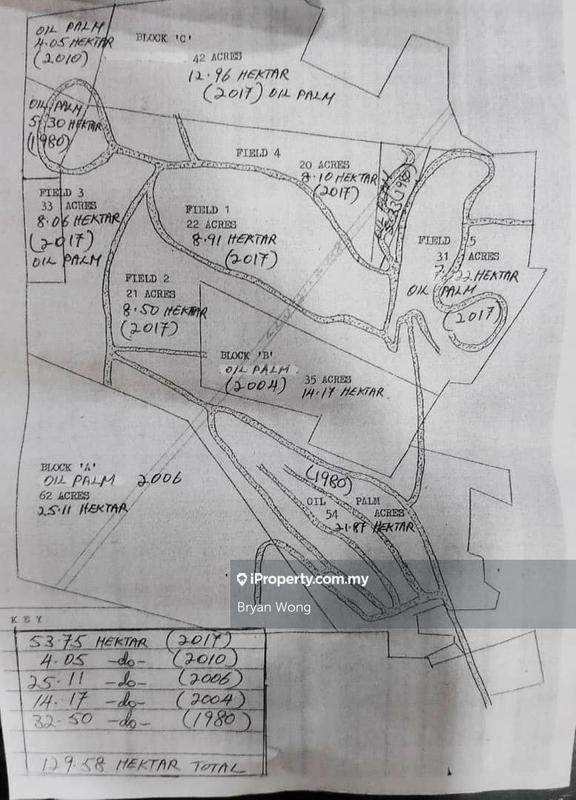 OIL PALM
4.05 HEKTAR
(2010)
BLOCK 'C'
42 ACRES
12.96 HEKTAR
(2017) OIL PALM
OIL PALM
5.30 HEKTAR
(1980)
FIELD 4
20 ACRES
8.10 HEKTAR
(2017)
FIELD 3
33 ACRES
8.06 HEKTAR
(2017)
OIL PALM
FIELD 1
22 ACRES
8.91 HEKTAR
(2017)
FIELD 5
31 ACRES
HEKTAR
OIL PALM
(2017)
FIELD 2
21 ACRES
8.50 HEKTAR
(2017)
BLOCK 'B'
OIL PALM
(2004)
35 ACRES
14.17 HEKTAR
BLOCK 'A'
OIL PALM 2006
62 ACRES
25.11 HEKTAR
(1980)
OIL PALM
54 ACRES
21.87 HEKTAR
iProperty.com.my
Bryan Wong
KEY
53.75 HEKTAR (2017)
4.05 -do- (2010)
25.11 -do- (2006)
14.17 -do- (2004)
32.50 -do- (1980)
129.58 HEKTAR TOTAL